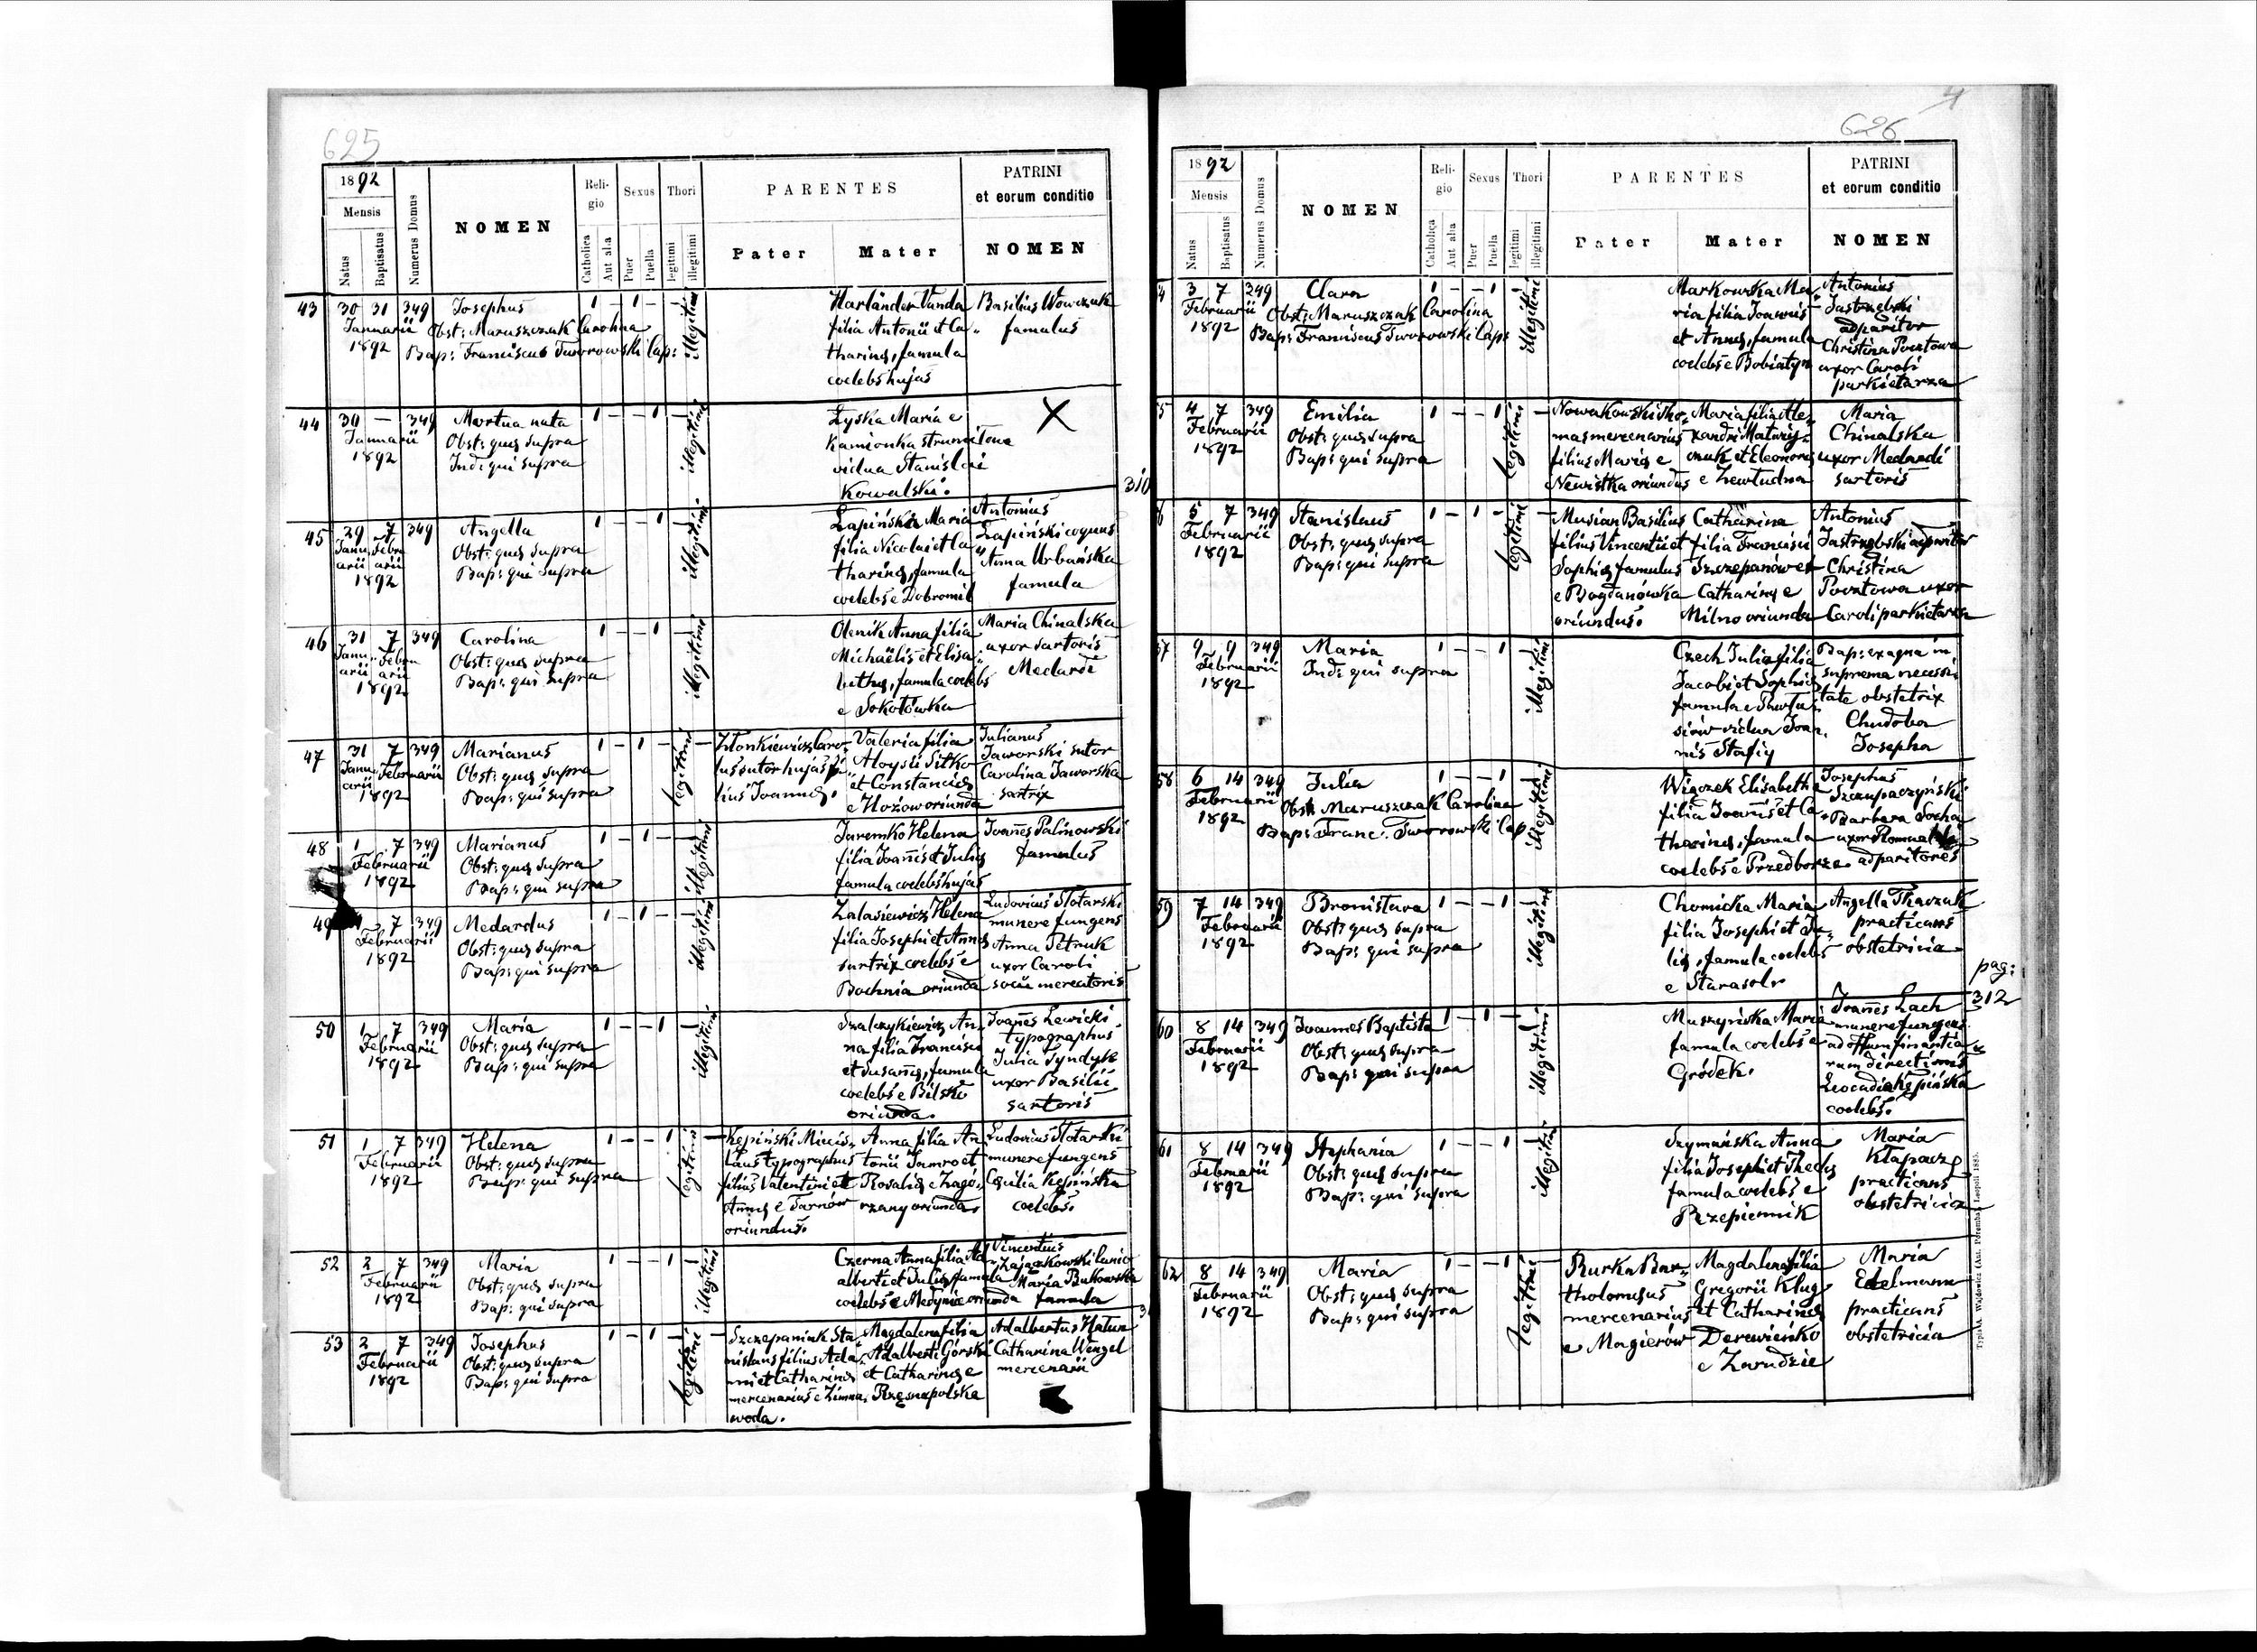 625
1892
Mensis
Natus
Baptisatus
Numerus Domus
NOMEN
Religio
Catholica
Aut alia
Sexus
Puer
Puella
Thori
legitimi
illegitimi
PARENTES
Pater
Mater
PATRINI
et eorum conditio
NOMEN
43
30 31 349
Januarii
1892
Josephus
Obst: Maruszczak Carolina
Bap: Franciscus Tworowski Cap:
1 - 1 - -
illegitimi
Harländer Vanda
filia Antonii et Ca-
tharinę, famula
coelebs hujas
Basilius Wowczuk
famulus
44
30 - 349
Januarii
1892
Mortua nata
Obst: quę supra
Ind: qui supra
1 - - 1 -
illegitimi
Łyska Maria e
Kamionka strumiłowa
vidua Stanislai
Kowalski.
X
310
45
29 7 349
Janu- Febru
arii arii
1892
Angella
Obst: quę supra
Bap: qui supra
1 - - 1 -
illegitimi
Łapińska Maria
filia Nicolai et Ca
tharinę, famula
coelebs e Dobromil
Antonius
Łapiński coquus
Anna Urbańska
famula
46
31 7 349
Janu- Febru
arii arii
1892
Carolina
Obst: quę supra
Bap: qui supra
1 - - 1 -
illegitimi
Olenik Anna filia
Michaëlis et Elisa-
bethę, famula coelebs
e Sokołówka
Maria Chinalska
uxor sartoris
Medardi
47
31 7 349
Janu- Februarii
arii
1892
Marianus
Obst: quę supra
Bap: qui supra
1 - 1 - -
legitimi
lus sutor hujas fi-
lius Joannę.
Valeria filia
Aloysii Sitko
et Constancię
e Hożow oriunda
Julianus
Jaworski sutor
Carolina Jaworska
sartrix
48
1 7 349
Februarii
1892
Marianus
Obst: quę supra
Bap: qui supra
1 - 1 - -
illegitimi
Jaremko Helena
filia Joannis et Julię
famula coelebs hujas
Joannes Palinowski
famulus
49
1 7 349
Februarii
1892
Medardus
Obst: quę supra
Bap: qui supra
1 - 1 - -
illegitimi
Zalasiewicz Helena
filia Josephi et Annę
sartrix coelebs e
Bochnia oriunda
Ludovicus Stotarski
munere fungens
Anna Petruk
uxor Caroli
socii mercatoris
50
1 7 349
Februarii
1892
Maria
Obst: quę supra
Bap: qui supra
1 - - 1 -
illegitimi
Szalczykiewicz An-
na filia Francisci
et Susannę, famula
coelebs e Bilsko
oriunda.
Joannes Lewicki
typographus
Julia Tyndyk
uxor Basilii
sartoris
51
1 7 349
Februarii
1892
Helena
Obst: quę supra
Bap: qui supra
1 - - 1 -
legitimi
Kępiński Miecis-
laus typographus
filius Valentini et
Annę e Tarnów
oriundus.
Anna filia An-
tonii Jamro et
Rosalię e Zagó-
rzany oriunda.
Ludovicus Stotarski
munere fungens
Cęcilia Kępińska
coelebs.
52
2 7 349
Februarii
1892
Maria
Obst: quę supra
Bap: qui supra
1 - - 1 -
illegitimi
Czerna Anna filia Ad-
alberti et Julię famula
coelebs e Medynie oriunda
Vincentius
Zajączkowski lanio
Maria Bukowska
famula
53
2 7 349
Februarii
1892
Josephus
Obst: quę supra
Bap: qui supra
1 - 1 - -
legitimi
Szczepaniak Sta-
nislaus filius Ada-
mi et Catharinę
mercenarius e Zimna
woda.
Magdalena filia
Adalberti Górski
et Catharinę e
Rzęsna polska
Adalbertus Hatun
Catharina Wenzel
mercenarii
626
1892
Mensis
Natus
Baptisatus
Numerus Domus
NOMEN
Religio
Catholica
Aut alia
Sexus
Puer
Puella
Thori
legitimi
illegitimi
PARENTES
Pater
Mater
PATRINI
et eorum conditio
NOMEN
4
3 7 249
Februarii
1892
Clara
Obst: Maruszczak Carolina
Bap: Franciscus Tworowski Cap:
1 - - 1 -
illegitimi
Markowska Ma-
ria filia Joannis
et Annę, famula
coelebs e Bobiatyn
Antonius
Jastrzebski
adparitor
Christina Pocztowa
uxor Caroli
parkietarza
5
4 7 349
Februarii
1892
Emilia
Obst: quę supra
Bap: qui supra
1 - - 1 -
legitimi
Nowakowski Tho-
mas mercenarius
filius Marię e
Newistka oriundus
Maria filia Ale-
xandri Matwij-
czuk et Eleonorę
Maria
Chinalska
uxor Medardi
sartoris
6
5 7 349
Februarii
1892
Stanislaus
Obst: quę supra
Bap: qui supra
1 - 1 - -
legitimi
Musian Basilius
filius Vincentii et
Sophię famulus
e Bogdanówka
oriundus.
Catharina
filia Francisci
Szczepanow et
Catharinę e
Milno oriunda
Antonius
Jastrzębski adparitor
Christina
Pocztowa uxor
Caroli parkietarza
57
9 9 349
Februarii
1892
Maria
Ind: qui supra
1 - - 1
illegitimi
Czech Julia filia
Jacobi et Sophię
nis Stafiy
Bap: ex aqua in
suprema necessi
tate obstetrix
Chudoba
Josepha
58
6 14 349
Februarii
1892
Julia
Obst: Maruszczak Carolina
Bap: Franc: Tworowski Cap
1 - - 1 -
illegitimi
Wiącek Elisabetha
filia Joannis et Ca-
tharinę, famula
coelebs e Przedborze
Josephus
Szczupaczyński
Barbara Socha
adparitores
59
7 14 349
Februarii
1892
Bronislava
Obst: quę supra
Bap: qui supra
1 - - 1 -
illegitimi
Chomicka Maria
filia Josephi et Ju-
lię, famula coelebs
e Starasol
Angella Tkaczuk
practicans
obstetricia
pag:
312
60
8 14 349
Februarii
1892
Joannes Baptista
Obst: quę supra
Bap: qui supra
1 - 1 - -
illegitimi
Muszyńska Maria
famula coelebs e
Gródek.
Joannes Lach
munere fungens
Leocadia Kępińska
coelebs.
61
8 14 349
Februarii
1892
Stephania
Obst: quę supra
Bap: qui supra
1 - - 1 -
illegitimi
Szymańska Anna
filia Josephi et Theclę
famula coelebs e
Rzepiennik
Maria
Kłapacz
practicans
obstetricia
62
8 14 349
Februarii
1892
Maria
Obst: quę supra
Bap: qui supra
1 - - 1 -
legitimi
Rurka Bar-
tholomęus
mercenarius
e Magierów
Magdalena filia
Gregorii Klug
et Catharinę
Derewieńko
e Zarudzie
Maria
Edelmann
practicans
obstetricia